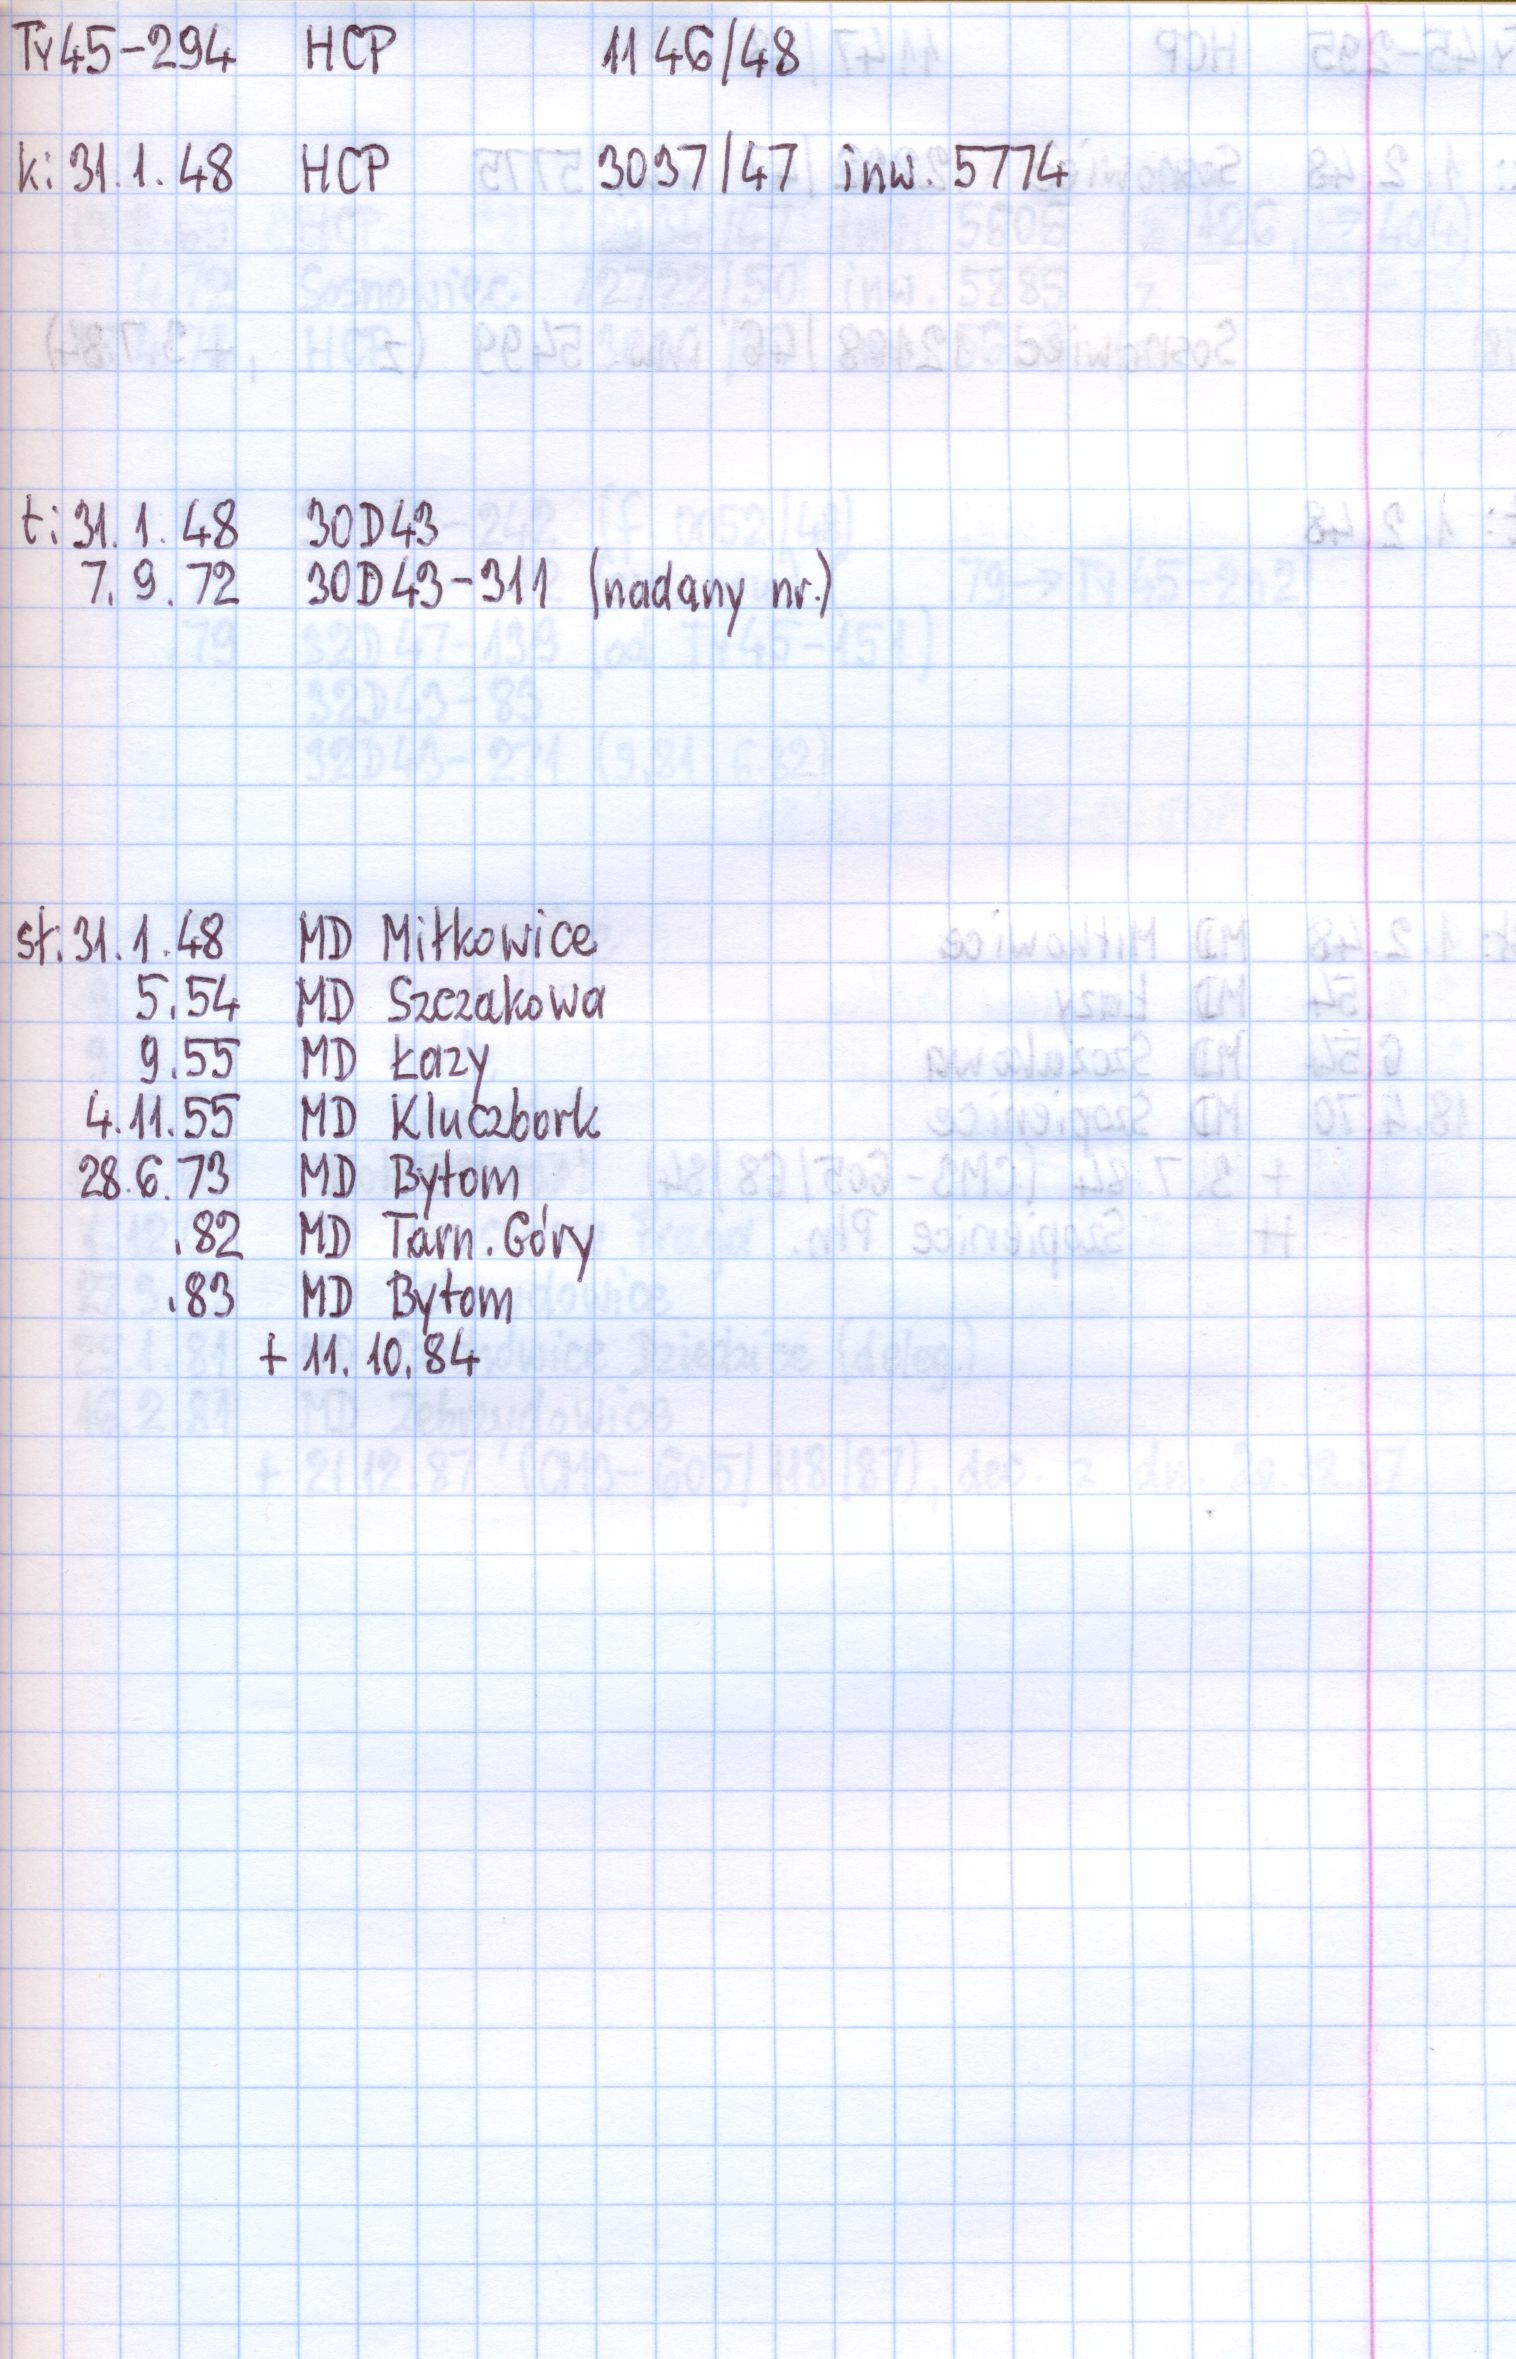 Ty45-294 HCP 1146/48
k: 31.1.48 HCP 3037/47 inw. 5774
t: 31.1.48 30D43
7.9.72 30D43-311 (nadany nr.)
st. 31.1.48 MD Miłkowice
5.54 MD Szczakowa
9.55 MD Łazy
4.11.55 MD Kluczbork
28.6.73 MD Bytom
.82 MD Tarn. Góry
.83 MD Bytom
+ 11.10.84